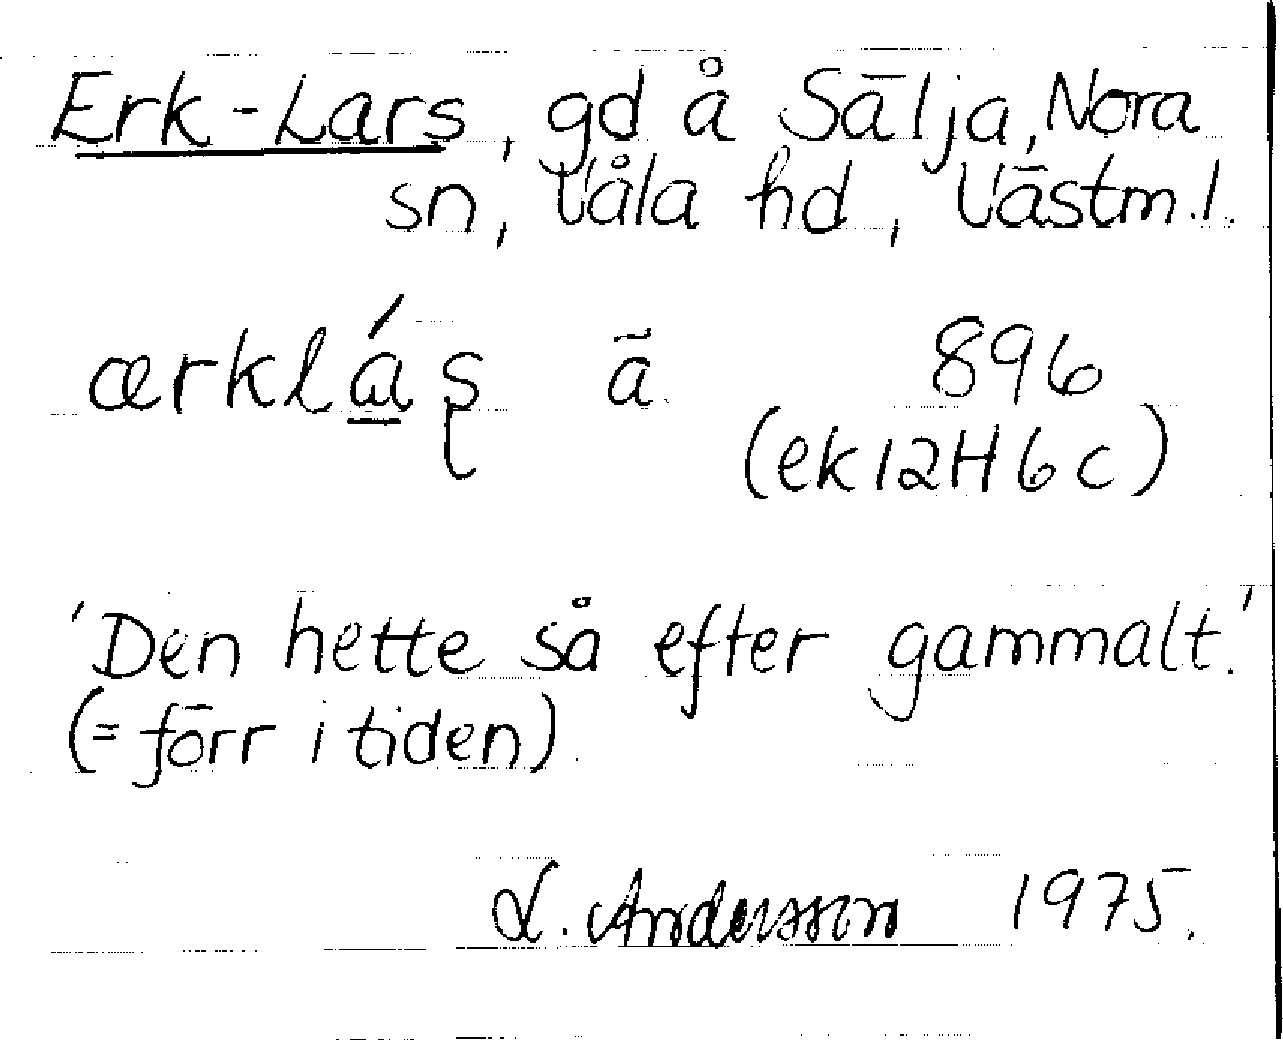 Erk-Lars, gd å Sälja, Nora
sn, Våla hd, Västm.l.
ærklás̨ ä 896
(ek 12H6c)
'Den hette så efter gammalt.'
(= förr i tiden)
L. Andersson 1975.